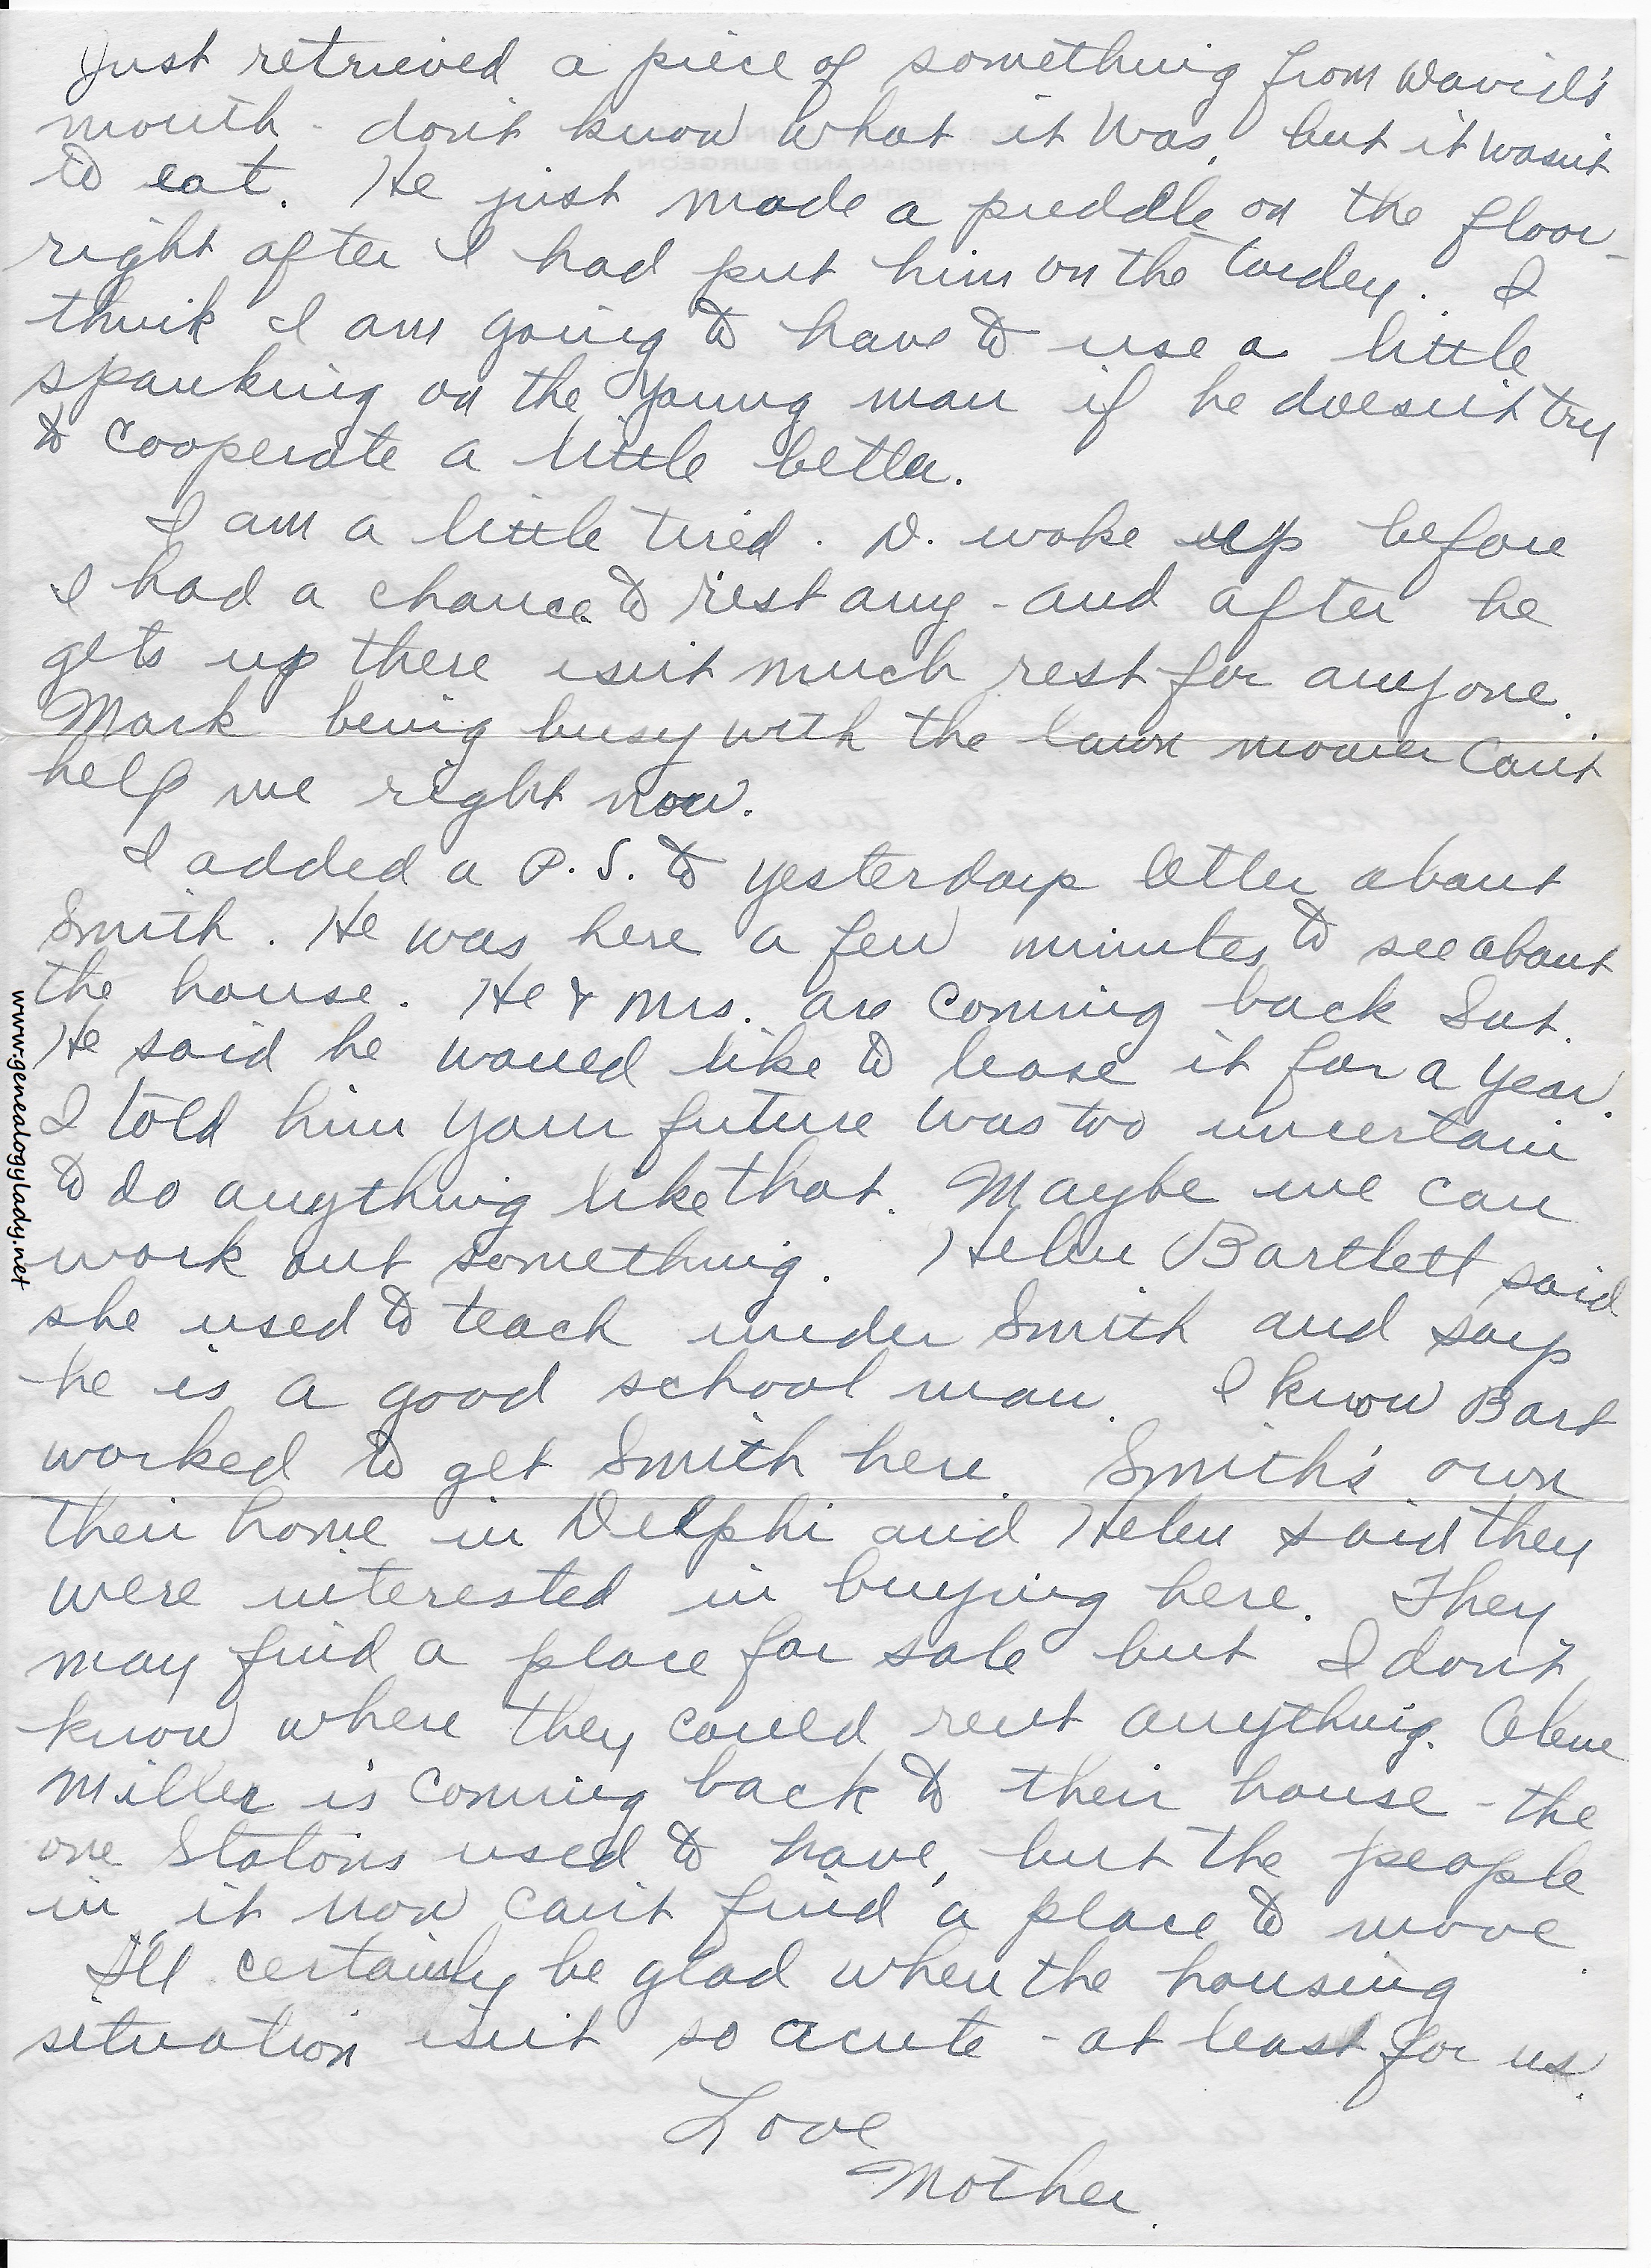 Just retrieved a piece of something from David's
mouth - don't know what it was, but it wasn't
to eat. He just made a puddle on the floor -
right after I had put him on the toidey. I
think I am going to have to use a little
spanking on the young man if he doesn't try
to cooperate a little better.
I am a little tired. D. woke up before
I had a chance to rest any - and after he
gets up there isn't much rest for anyone.
Mark being busy with the lawn mower can't
help me right now.
I added a P.S. to yesterdays letter about
Smith. He was here a few minutes to see about
the house. He & Mrs. are coming back Sat.
He said he would like to lease it for a year.
I told him your future was too uncertain
to do anything like that. Maybe we can
work out something. Helen Bartlett said
she used to teach under Smith and says
he is a good school man. I know Bart
worked to get Smith here. Smith's own
their home in Delphi and Helen said they
were interested in buying here. They
may find a place for sale but I don't
know where they could rent anything.
Miller is coming back to their house - the
one Statons used to have, but the people
in it now can't find a place to move.
I'll certainly be glad when the housing
situation isn't so acute - at least for us.
Love
Mother.
www.genealogylady.net